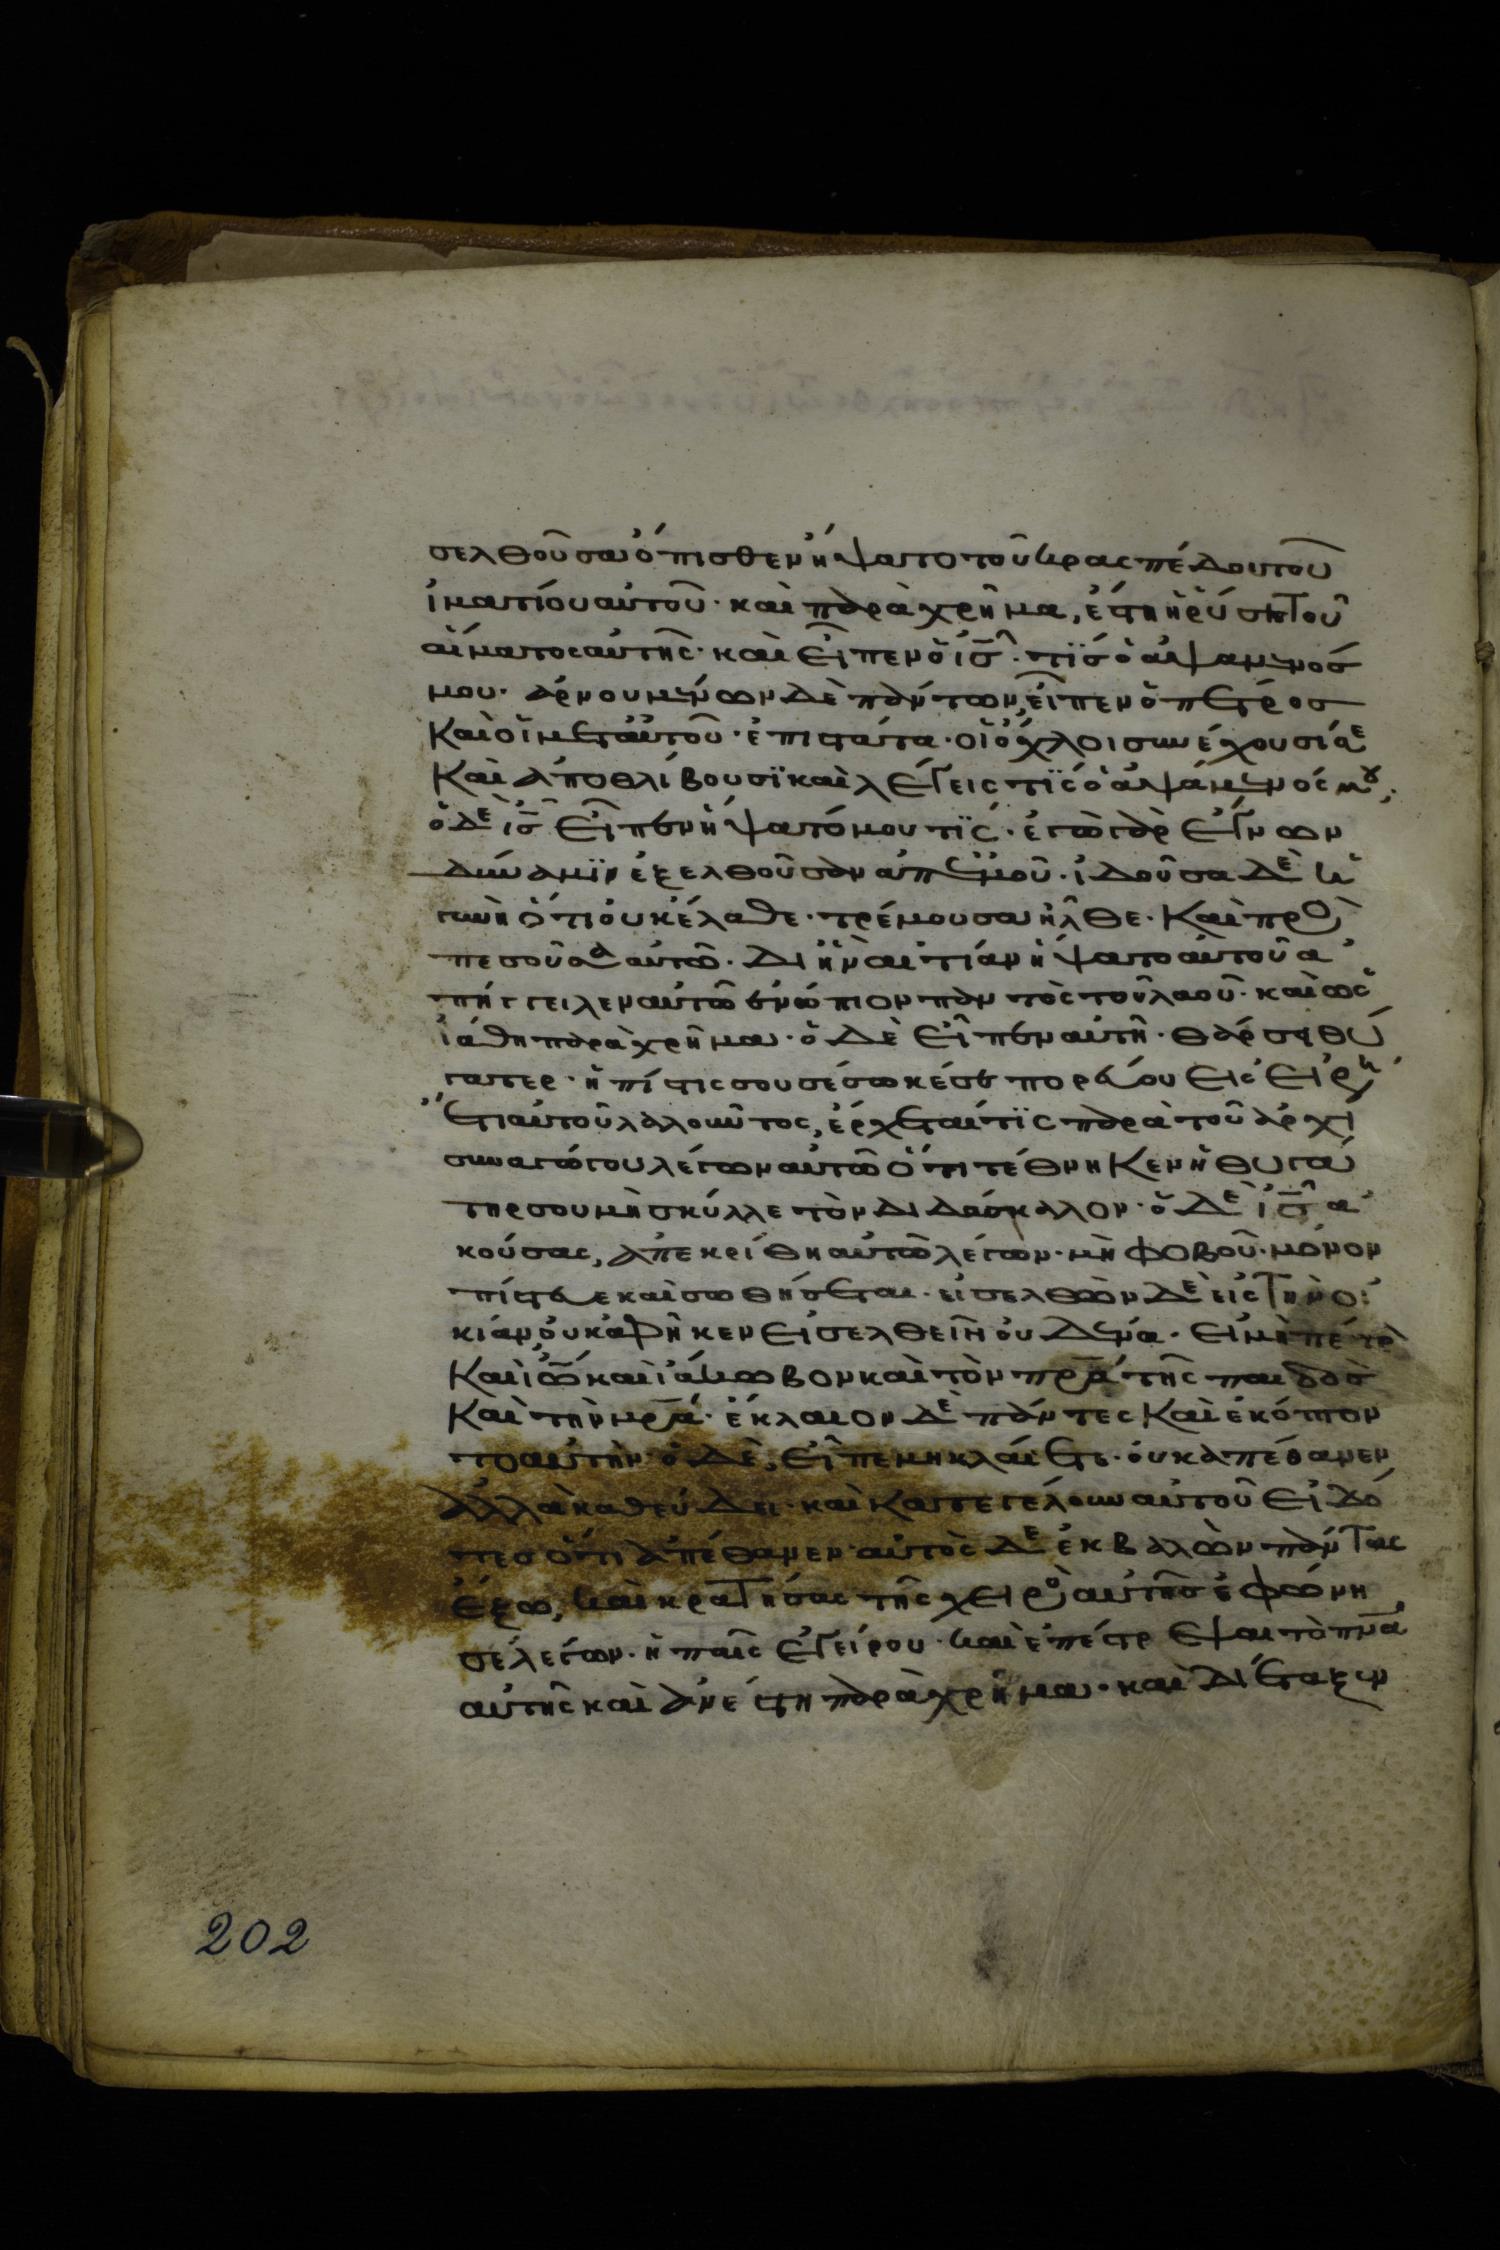 σελθοῦσα ὄπισθεν ἥψατο τοῦ κρασπέδου τοῦ
ἱματίου αὐτοῦ· καὶ παραχρῆμα, ἔστη ἡ ῥύσις τοῦ
αἵματος αὐτῆς· καὶ εἶπεν ὁ ι̅ς̅· τίς ὁ ἁψάμενός
μου· ἀρνουμένων δὲ πάντων, εἶπεν ὁ πέτρος
Καὶ οἱ μετ αὐτοῦ· ἐπιστάτα· οἱ ὄχλοι συνέχουσί σε
Καὶ ἀποθλίβουσϊ καὶ λέγεις τίς ὁ ἁψάμενός μου;
ὁ δὲ ι̅ς̅ εἶπεν ἥψατό μου τίς· ἐγὼ γὰρ ἔγνων
δύναμϊν ἐξελθοῦσαν ἀπ ἐμοῦ· ἰδοῦσα δὲ ἡ
γυνὴ ὅτι οὐκ ἔλαθε· τρέμουσα ἦλθε· Καὶ προσ
πεσοῦσα αὐτῶ· δι ἣν αἰτίαν ἥψατο αὐτοῦ ἀ
πήγγειλεν αὐτῶ ἐνώπιον παντὸς τοῦ λαοῦ· καὶ ὡς
ἰάθη παραχρῆμα· ὁ δὲ εἶπεν αὐτῆ· θάρσει θύ
γατερ· ἡ πίστις σου σέσωκέ σε πορεύου εἰς εἰρή
Ἔτι αὐτοῦ λαλοῦντος, ἔρχεταί τϊς παρὰ τοῦ ἀρχι
συναγώγου λέγων αὐτῶ ὅτι τέθνηκεν ἡ θυγά
τηρ σου μὴ σκύλλε τὸν διδάσκαλον· ὁ δὲ ι̅ς̅ ἀ
κούσας, ἀπεκρίθη αὐτῶ λέγων· μὴ φοβοῦ· μόνον
πίστευε καὶ σωθήσεται· εἰσελθὼν δὲ εἰς τὴν οἰ
κίαν, οὐκ ἀφῆκεν εἰσελθεῖν οὐδένα· εἰ μὴ πέτρ
Καὶ ἰω̅ καὶ ἰάκωβον καὶ τὸν πρ̅α τῆς παιδὸς
Καὶ τὴν μρ̅α· ἔκλαιον δὲ πάντες Καὶ ἐκόπτον
το αὐτὴν· ὁ δὲ, εἶπε μὴ κλαίετε· οὐκ ἀπέθανεν
ἀλλὰ καθεύδει· καὶ κατεγέλουν αὐτοῦ εἰδό
τες ὅτι ἀπέθανεν· αὐτὸς δὲ ἐκβαλὼν πάντας
ἔξω, καὶ κρατήσας τῆς χειρὸς αὐτῆς ἐφώνη
σε λέγων· ἡ παῖς ἐγείρου· καὶ ἐπέστρεψαι τὸ πν̅α
αὐτῆς καὶ ἀνέστη παραχρῆμα· καὶ διέταξεν
202